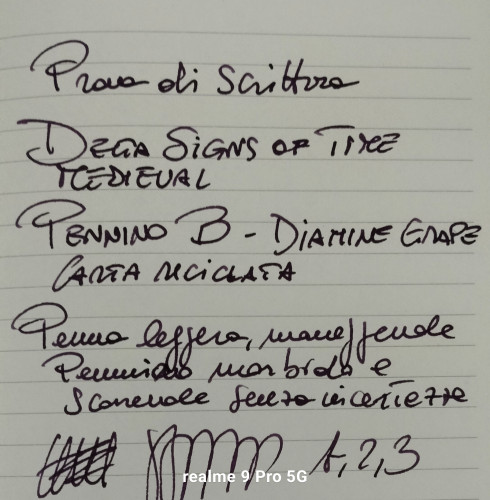 Prova di Scrittura
DELTA SIGNS OF TIME
MEDIEVAL
PENNINO B - DIAMINE GRAPE
CARTA RICICLATA
Penna leggera, maneggevole
Pennino morbido e
scorrevole senza incertezze
1, 2, 3
realme 9 Pro 5G